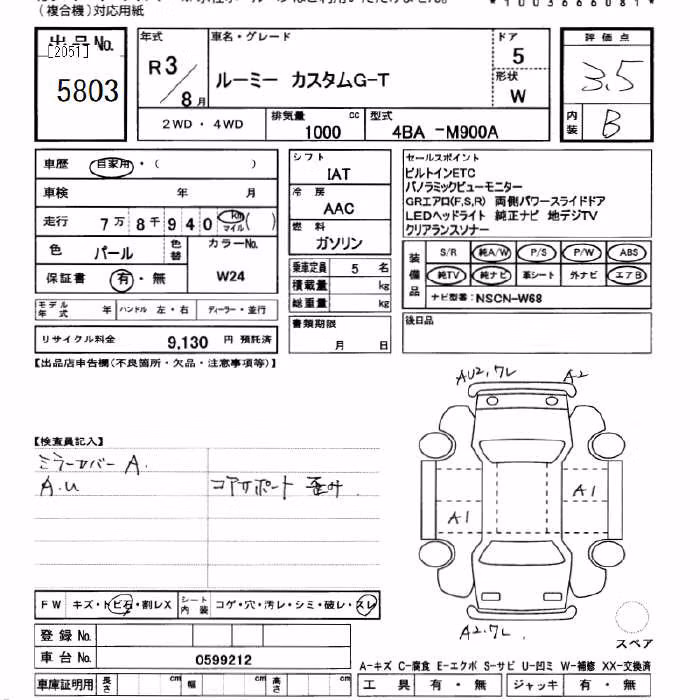 (複合機)対応用紙
*1003666081*
出品No.
[2051]
5803
年式
R3/8月
車名・グレード
ルーミー カスタムG-T
ドア
5
形状
W
評価点
3.5
内装
B
2WD・4WD
排気量
1000 cc
型式
4BA -M900A
車歴 自家用・( )
車検 年 月
走行 7万8千940 km マイル ( )
色 パール
色替
カラーNo.
W24
保証書 有・無
モデル年式 年
ハンドル 左・右
ディーラー・並行
リサイクル料金 9,130 円 預託済
シフト
IAT
冷房
AAC
燃料
ガソリン
乗車定員 5 名
積載量 kg
総重量 kg
書類期限
月 日
セールスポイント
ビルトインETC
パノラミックビューモニター
GRエアロ(F,S,R) 両側パワースライドドア
LEDヘッドライト 純正ナビ 地デジTV
クリアランスソナー
装備品
S/R 純A/W P/S P/W ABS
純TV 純ナビ 革シート 外ナビ エアB
ナビ型番:NSCN-W68
後日品
【出品店申告欄(不良箇所・欠品・注意事項等)】
【検査員記入】
ミラーカバー A.
A.U
コアサポート 歪み.
AU2.フレ
A2
A1
A1
A2.フレ
スペア
FW キズ・トビ石・割レX
シート内装 コゲ・穴・汚レ・シミ・破レ・スレ
登録No.
車台No. 0599212
A-キズ C-腐食 E-エクボ S-サビ U-凹ミ W-補修 XX-交換済
車庫証明用 長さ cm 幅 cm 高さ cm
工具 有・無 ジャッキ 有・無